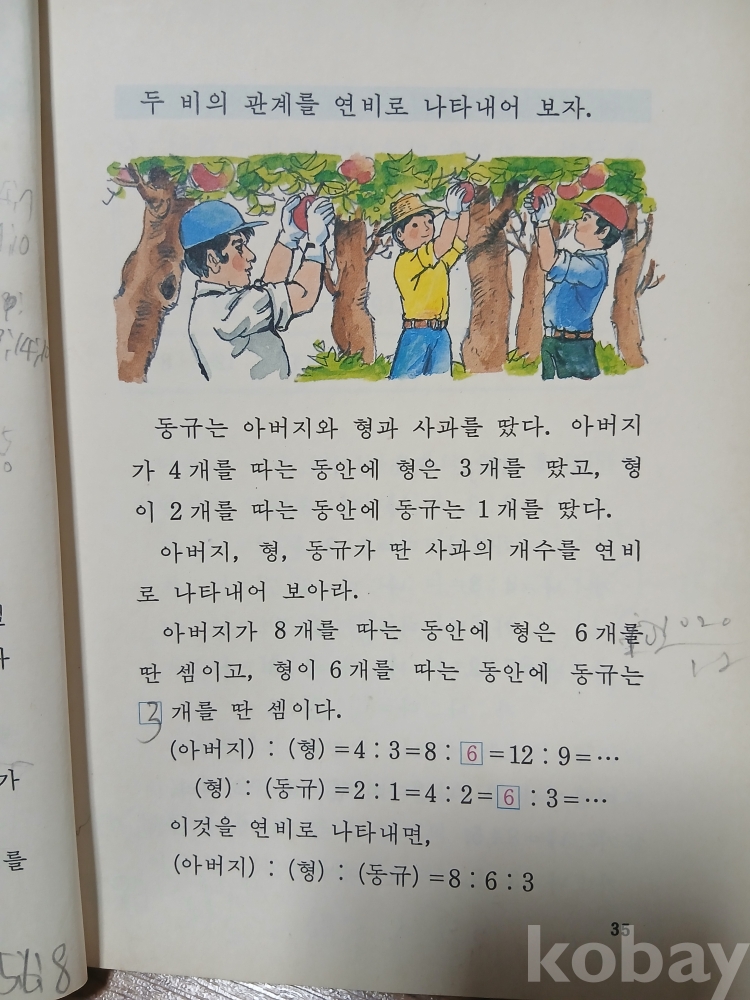 두 비의 관계를 연비로 나타내어 보자.
동규는 아버지와 형과 사과를 땄다. 아버지
가 4개를 따는 동안에 형은 3개를 땄고, 형
이 2개를 따는 동안에 동규는 1개를 땄다.
아버지, 형, 동규가 딴 사과의 개수를 연비
로 나타내어 보아라.
아버지가 8개를 따는 동안에 형은 6개를
딴 셈이고, 형이 6개를 따는 동안에 동규는
3 개를 딴 셈이다.
(아버지) : (형) =4 : 3=8 : 6 =12 : 9=…
(형) : (동규) =2 : 1=4 : 2= 6 : 3=…
이것을 연비로 나타내면,
(아버지) : (형) : (동규) =8 : 6 : 3
35
가
를
kobay